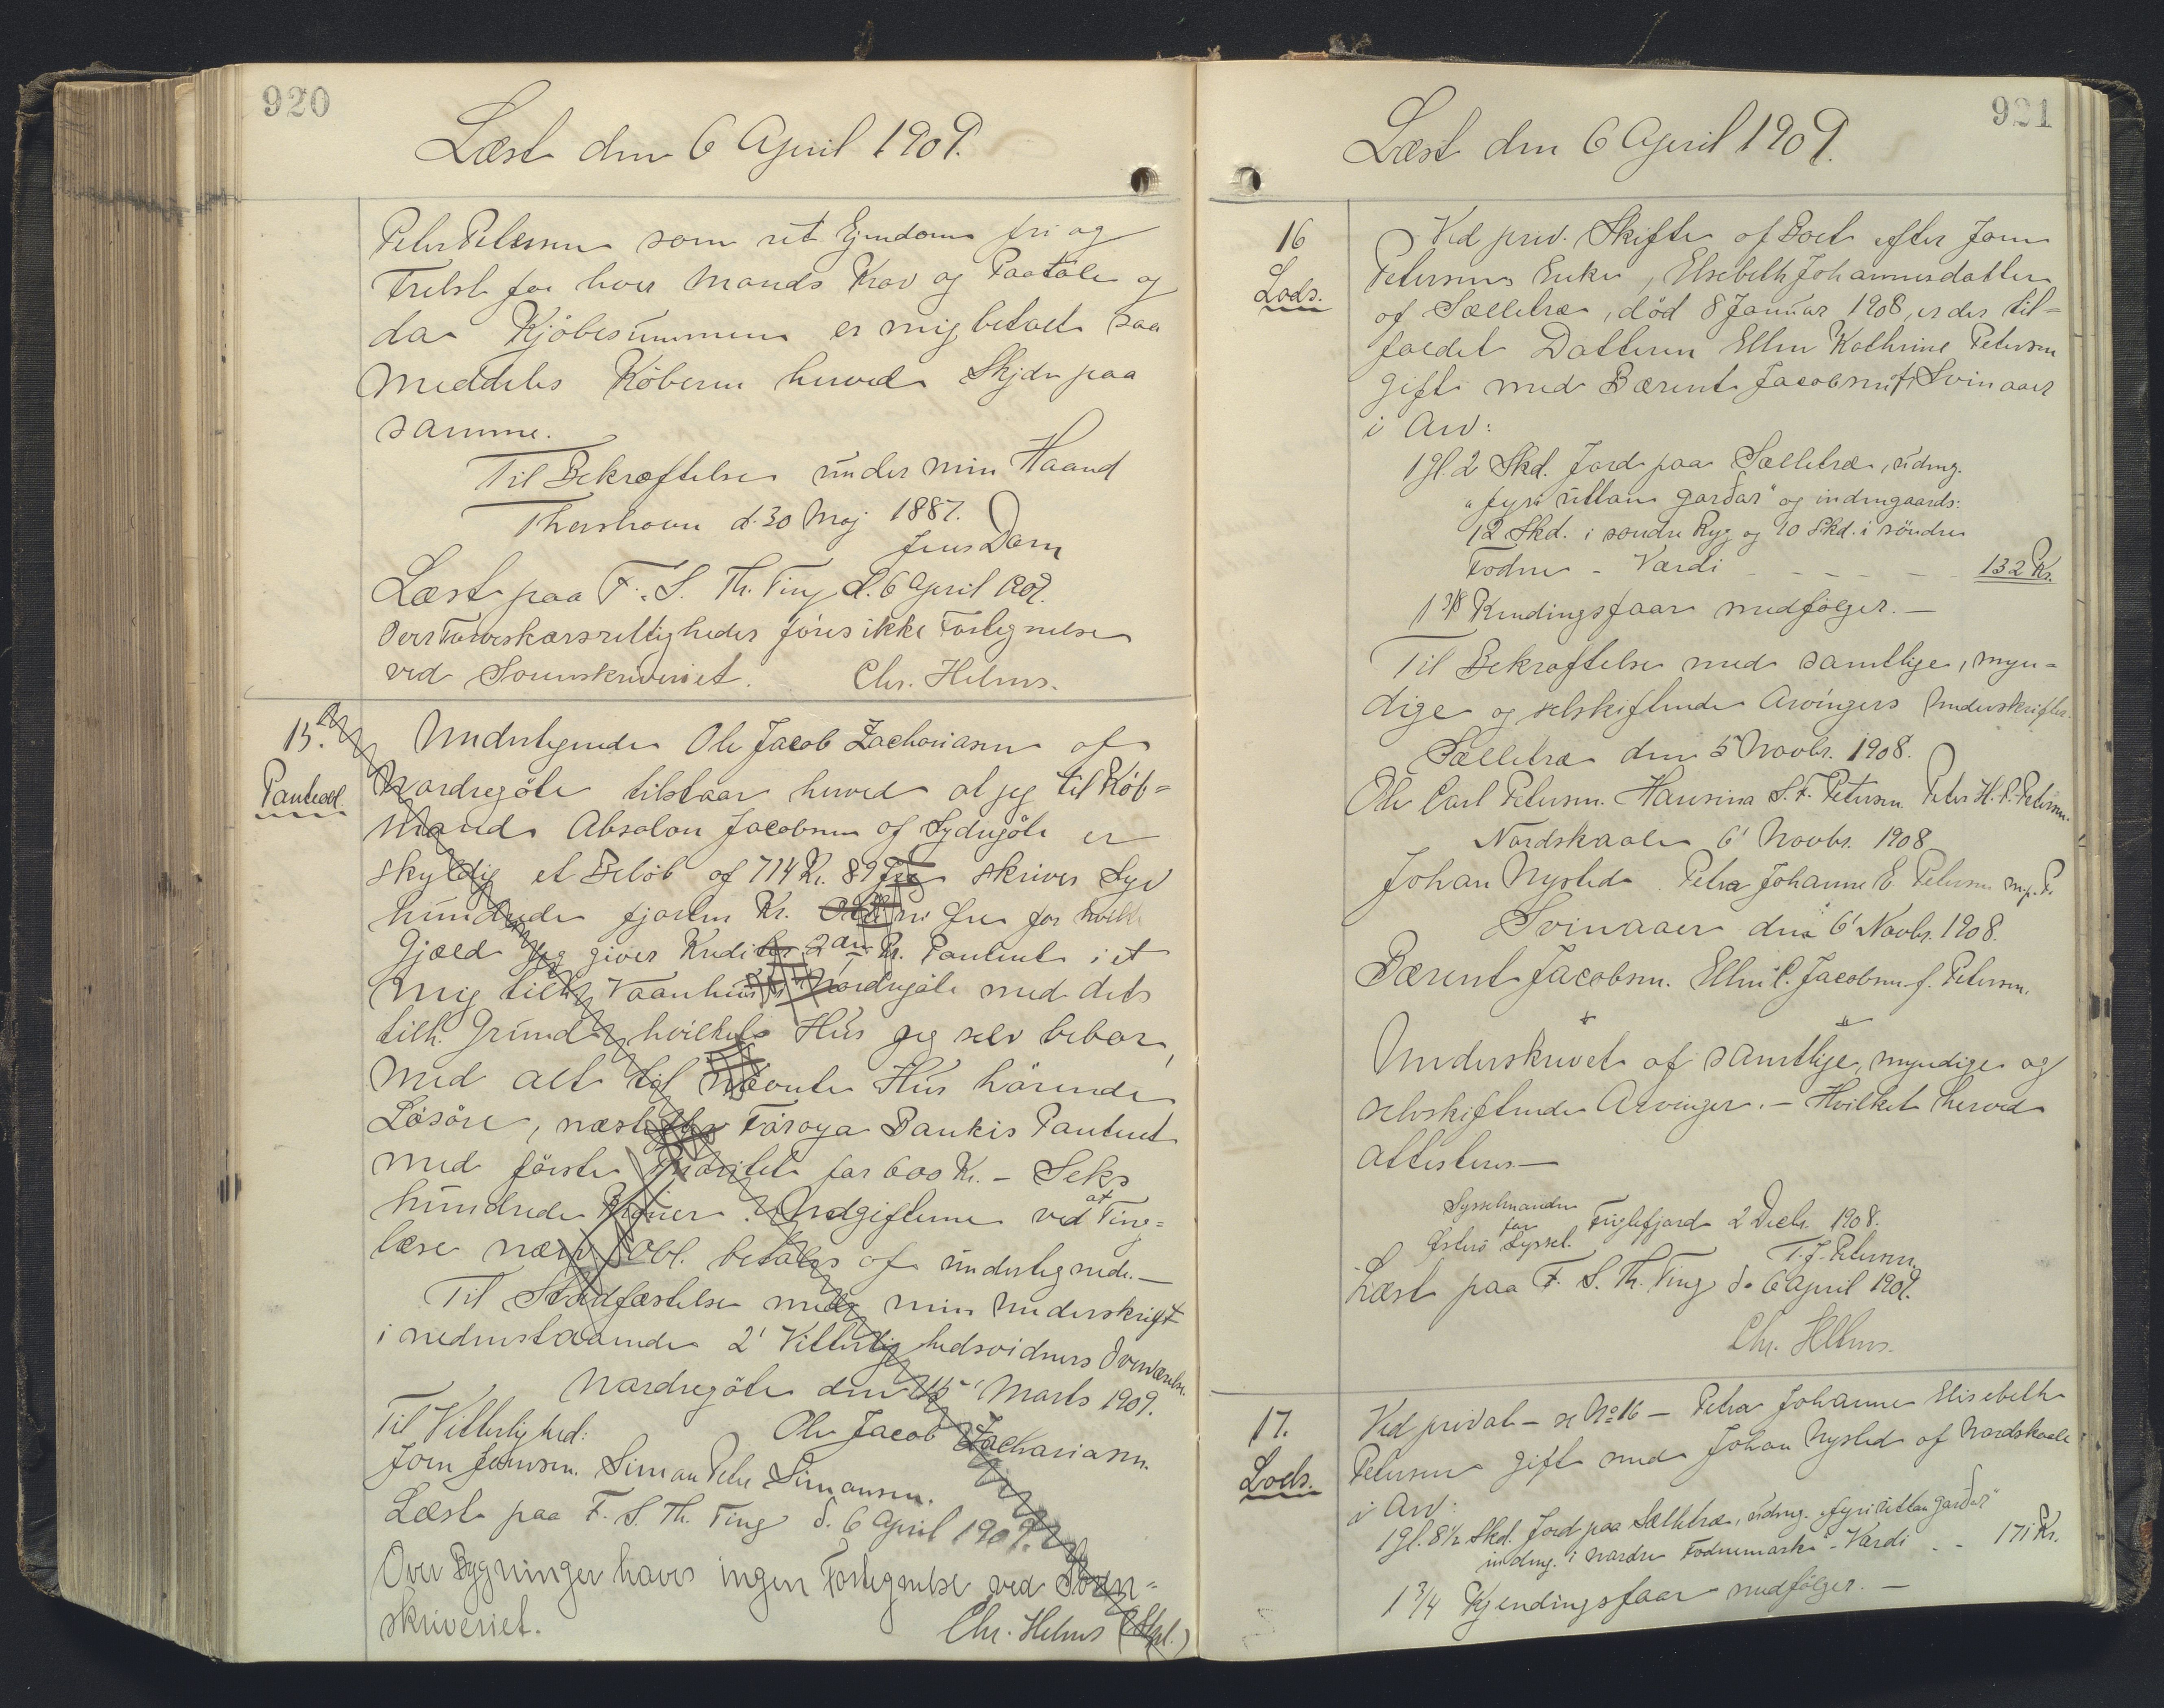 920
Læst den 6 April 1909.
Peter Petersen som ret Ejendom fri og
Frelst for hver Mands Krav og Paatale og
da Kjöbesummen er mig betalt saa
meddeles Köberen herved Skjöde paa
samme.
Til Bekræftelse under min Haand
Thorshavn d. 30 Maj 1887.
Jens Dam
Læst paa F. S. Th. Ting d. 6 April 1909.
Over Torveskærsrettigheder föres ikke Fortegnelse
ved Sorenskriveriet. Chr. Helms.
15.
Panteobl.
Undertegnede Ole Jacob Zachariasen af
Nordregöte tilstaar herved at jeg til Köb=
mand Absalon Jacobsen af Sydregöte er
skyldig et Belöb af 714 Kr. 89 Öre skriver Syv
hundrede fjorten Kr. ni Öre for hvilke
Gjæld jeg giver Kreditor 2den Pr. Panteret i et
mig tilh. Vaanhus i Nordregöte med dets
tilh. Grund, hvilket Hus jeg selv bebor,
med alt til nævnte Hus hörende
Lösöre, næst efter Föroya Bankis Panteret
med förste Prioritet for 600 Kr. - Seks
hundrede Kroner. Udgifterne ved at Ting=
læse nærv. Obl. betales af undertegnede. -
Til Stadfæstelse med min Underskrift
i nedenstaaende 2' Vitterlighedsvidners Overværelse.
Nordregöte den 15' Marts 1909.
Til Vitterlighed: Ole Jacob Zachariasen.
Joen Joensen. Simon Peter Simonsen.
Læst paa F. S. Th. Ting d. 6 April 1909.
Over Bygninger haves ingen Fortegnelse ved Soren=
skriveriet. Chr. Helms
921
Læst den 6 April 1909.
16
Lods.
Ved priv. Skifte af Boet efter Joen
Petersens Enke, Elsebeth Johannesdatter
af Sælletræ, död 8 Januar 1908, er der til=
faldet Datteren Ellen Kathrine Petersen
gift med Bærent Jacobsen af Svinaaer
i Arv:
1 gl. 2 Skd. Jord paa Sælletræ, udeng.
"fyri uttan garðar" og indengaards:
12 Skd. i söndre Ryg og 10 Skd. i söndre
Todnes - Værdi - - - - 132 Kr.
1 3/8 Kendingsfaar medfölger. -
Til Bekræftelse med samtlige, myn=
dige og selskiftende Arvingers Underskrifter.
Sælletræ den 5' Novbr. 1908.
Ole Carl Petersen. Hansina S. F. Petersen. Peter H. P. Petersen.
Nordskaale 6' Novbr. 1908
Johan Nysted Petra Johanne E. Petersen m. p. P.
Svinaaer den 6' Novbr. 1908.
Bærent Jacobsen. Ellen C. Jacobsen f. Petersen.
Underskrevet af samtlige, myndige og
selvskiftende Arvinger. - Hvilket herved
attesteres. -
Sysselmanden
for Fuglefjord 2 Decbr. 1908.
Österö Syssel.
T. J. Petersen.
Læst paa F. S. Th. Ting d. 6 April 1909.
Chr. Helms.
17.
Lods.
Ved privat - se No 16 - Petra Johanne Elisebeth
Petersen gift med Johan Nysted af Nordskaale
i Arv:
1 gl. 8½ Skd. Jord paa Sælletræ, udeng. "fyri uttan garðar"
indeng. i nordre Todnesmark - Værdi - - 171 Kr.
1 3/4 Kjendingsfaar medfölger. -